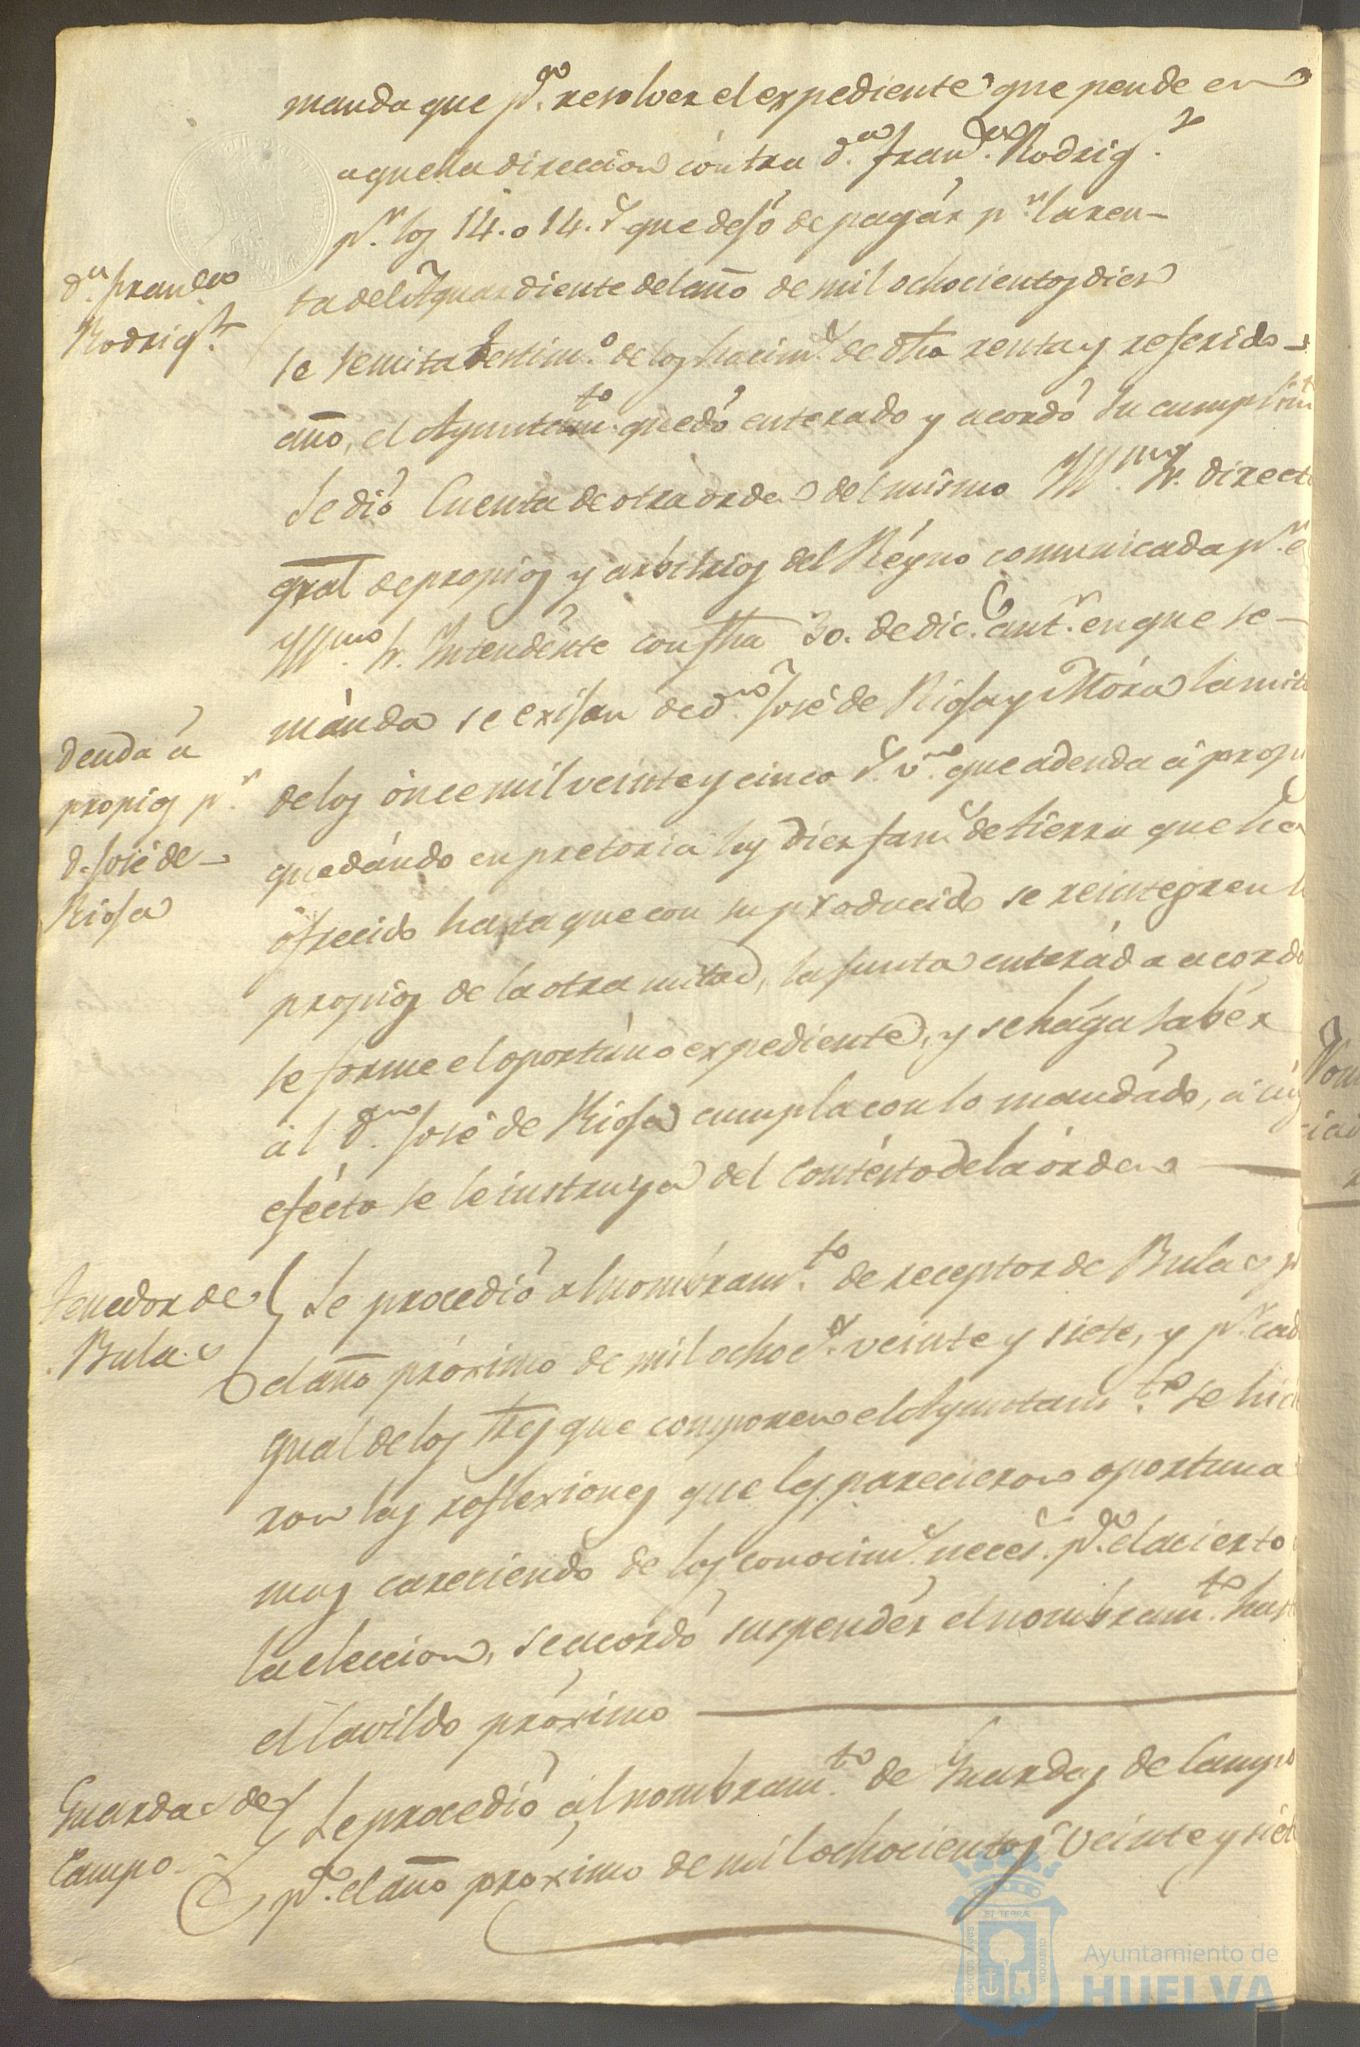 manda que pª. resolver el expediente que pende en
aquella direccion contra dª. Franᶜᵃ. Rodrigᶻ.
pʳ. los 14.o 14.ˢ que dejó de pagár pʳ. la ren-
dª. Franᶜᵃ
Rodrigᶻ.
ta del Aguardiente del año de mil ochocientos diez
se remita testimº. de los hacimˢ. de dha renta y referido
año, el Ayuntamᵗᵒ. quedó enterado y acordó su cumplimᵗᵒ
Se dió Cuenta de otra orden del mismo Yllᵐᵒ. Sr. direct
gral de propios y arbitrios del Réyno comunicada pʳ. e
Yllᵐᵒ. Sr. Intendénte con fha 30. de dicᵉ. antʳ. en que se
mánda se exijan de dⁿ. José de Rioja y Móra la mit
deuda á
propios pʳ.
d. José de
Rioja
de los ónce mil veinte y cinco ˢ. vⁿ. que adeuda á propi
quedándo en pretoria las diez fanˢ. de tierra que ha
ofrecido hasta que con su producido se reintegren
propios de la otra mitad, la junta enteráda acordo
se forme el oportúno expediente, y se hága sabér
ál dⁿ. José de Rioja cumpla con lo mandádo, á cuy
efécto se le instruya del contésto de la órden
Tenedor de
Bulas
Se procedió al nombramᵗᵒ. de receptor de Bulas p
el año próximo de mil ochocˢ. veinte y siete, y pʳ. cad
qual de los Sres que componen el Ayuntamᵗᵒ. se hicie
ron las reflexiones que les parecieron oportunas
mas careciendo de los conocimˢ. necesˢ. pª. el acierto
la eleccion, se acordó suspendér el nombramᵗᵒ. hast
el Cavildo próximo
Guardas de
Campo.
Se procedió ál nombramᵗᵒ. de Guardas de Campo
pª. el año próximo de mil ochocientos veinte y siete
Ayuntamiento de
HUELVA